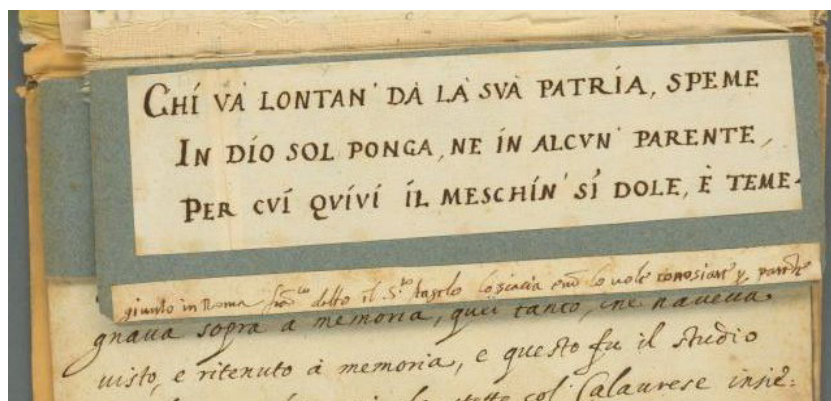 CHÍ VÀ LONTAN' DÀ LÀ SVÀ PATRÍA, SPEME
IN DÍO SOL PONGA, NE ÍN ALCVN' PARENTE,
PER CVÍ QVÍVÍ ÍL MESCHÍN' SÍ DOLE, È TEME.
giunto in Roma detto il S.to lo uole conosiare p parente
gnaua sopra a memoria, quei tanto, che haueua
uisto, e ritenuto à memoria, e questo fu il studio
col' Calaurese insie: